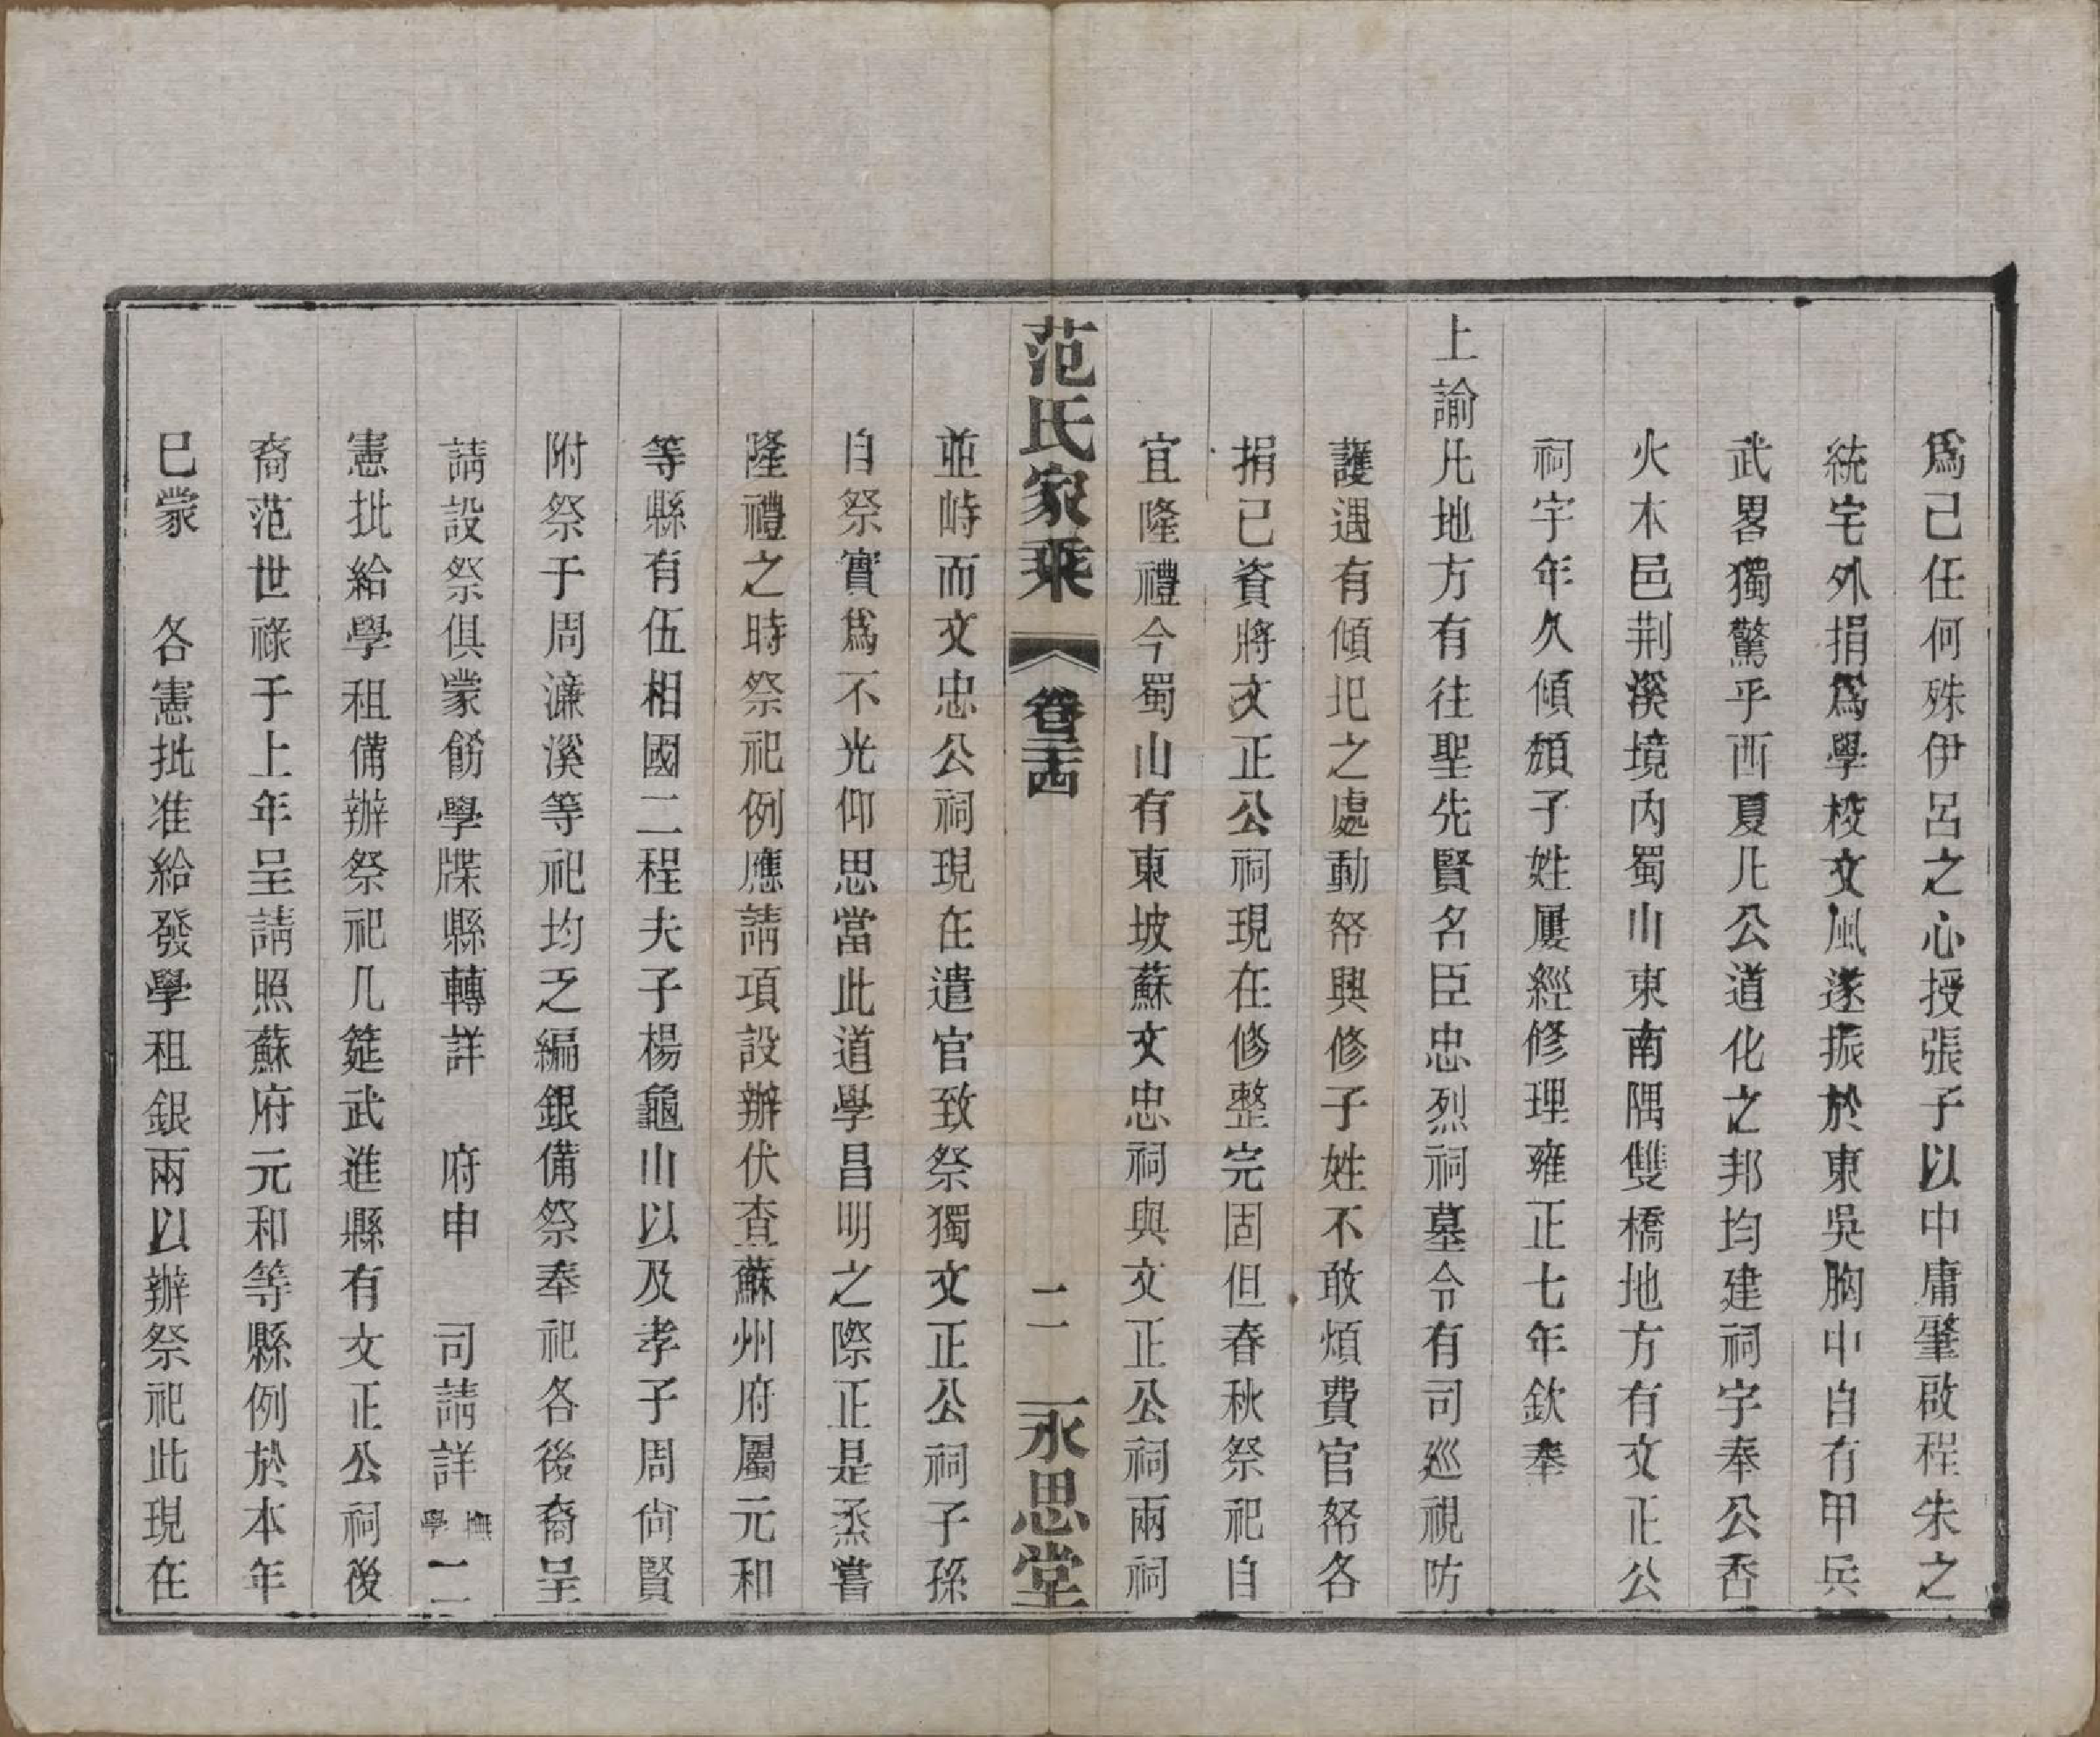 爲己任何殊伊呂之心授張子以中庸肇啟程朱之
統宅外捐爲學校文風遂振於東吳胸中自有甲兵
武畧獨驚乎西夏凡公道化之邦均建祠字奉公香
火本邑荆溪境內蜀山東南隅雙橋地方有文正公
祠宇年久傾頽子姓屢經修理雍正七年欽奉
上諭凡地方有往聖先賢名臣忠烈祠墓令有司巡視防
護遇有傾圯之處動帑興修子姓不敢煩費官帑各
捐已資將文正公祠現在修整完固但春秋祭祀自
宜隆禮今蜀山有東坡蘇文忠祠與文正公祠兩祠
范氏家乘 卷二十四 二 永思堂
並峙而文忠公祠現在遣官致祭獨文正公祠子孫
自祭實爲不光仰思當此道學昌明之際正是烝嘗
隆禮之時祭祀例應請項設辦伏查蘇州府屬元和
等縣有伍相國二程夫子楊龜山以及孝子周尙賢
附祭于周濂溪等祀均乏編銀備祭奉祀各後裔呈
請設祭俱蒙飭學牒縣轉詳 府申 司請詳撫學二
憲批給學租備辦祭祀几筵武進縣有文正公祠後
裔范世祿于上年呈請照蘇府元和等縣例於本年
巳蒙 各憲批准給發學租銀兩以辦祭祀此現在